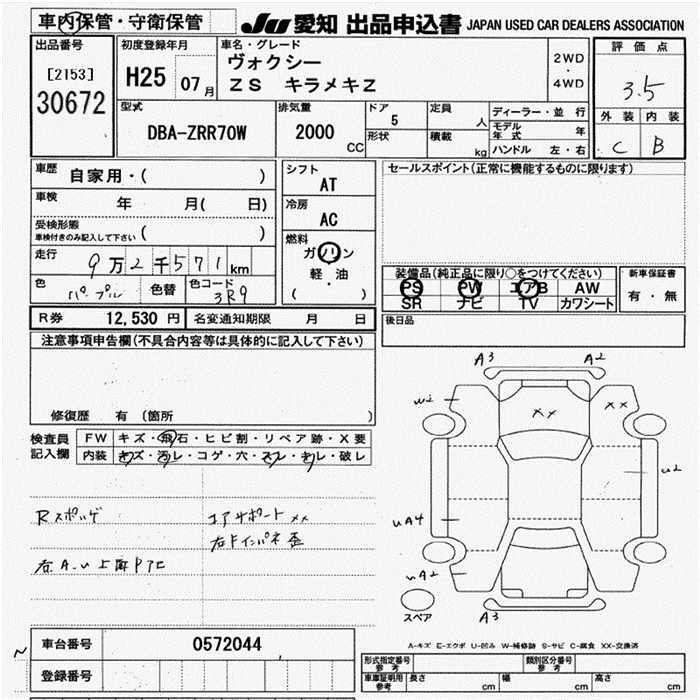 車内保管・守衛保管
JU 愛知 出品申込書 JAPAN USED CAR DEALERS ASSOCIATION
出品番号
[2153]
30672
初度登録年月
H25 07月
車名・グレード
ヴォクシー
ZS キラメキZ
2WD
・
4WD
評価点
3.5
外装 内装
C B
型式
DBA-ZRR70W
排気量
2000 CC
ドア
5
形状
定員
人
積載
kg
ディーラー・並行
モデル年式 年
ハンドル 左・右
車歴
自家用・( )
車検
年 月( 日)
受検形態
車検付きのみ記入して下さい ( )
走行
9万2千571km
色
パープル
色替
色コード
3R9
シフト
AT
冷房
AC
燃料
ガソリン
軽・油
( )
セールスポイント(正常に機能するものに限ります)
装備品(純正品に限り○をつけてください)
PS PW エアB AW
SR ナビ TV カワシート
新車保証書
有・無
R券 12,530円 名変通知期限 月 日
後日品
注意事項申告欄(不具合内容等は具体的に記入して下さい)
修復歴 有 (箇所 )
検査員
記入欄
FW キズ・飛石・ヒビ割・リペア跡・X要
内装 キズ・汚レ・コゲ・穴・スレ・キレ・破レ
コアサポート xx
A3 A2
W2
xx xx
U2
uA4
uA2
A3
スペア
A-キズ E-エクボ U-凹み W-補修跡 S-サビ C-腐食 XX-交換済
車台番号 0572044
登録番号
形式指定番号
参考
類別区分番号
参考
車庫証明用
参考
長さ cm 幅 cm 高さ cm